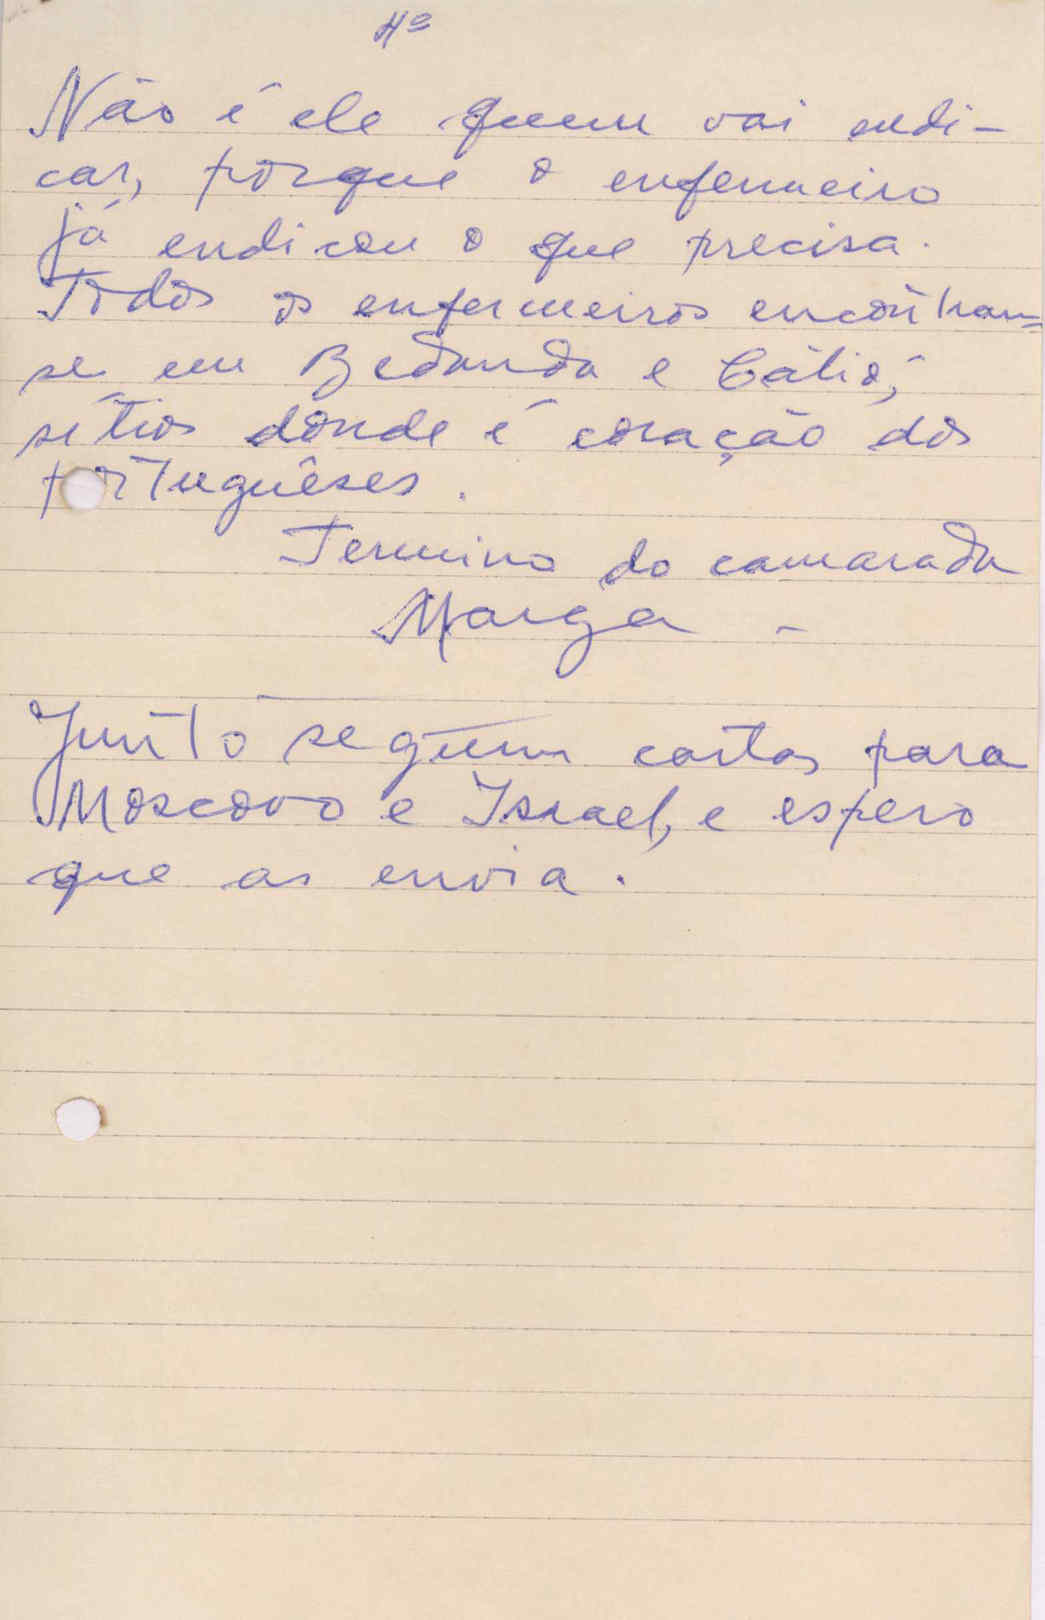 4º
Não é ele quem vai endi-
car, porque o enfermeiro
já endicou o que precisa.
Todos os enfermeiros encontram-
se em Bedanda e Cátió,
sítios donde é coração dos
portuguêses.
Termino do camarada
Manga -
Junto seguem cartas para
Moscovo e Israel, e espero
que as envia.